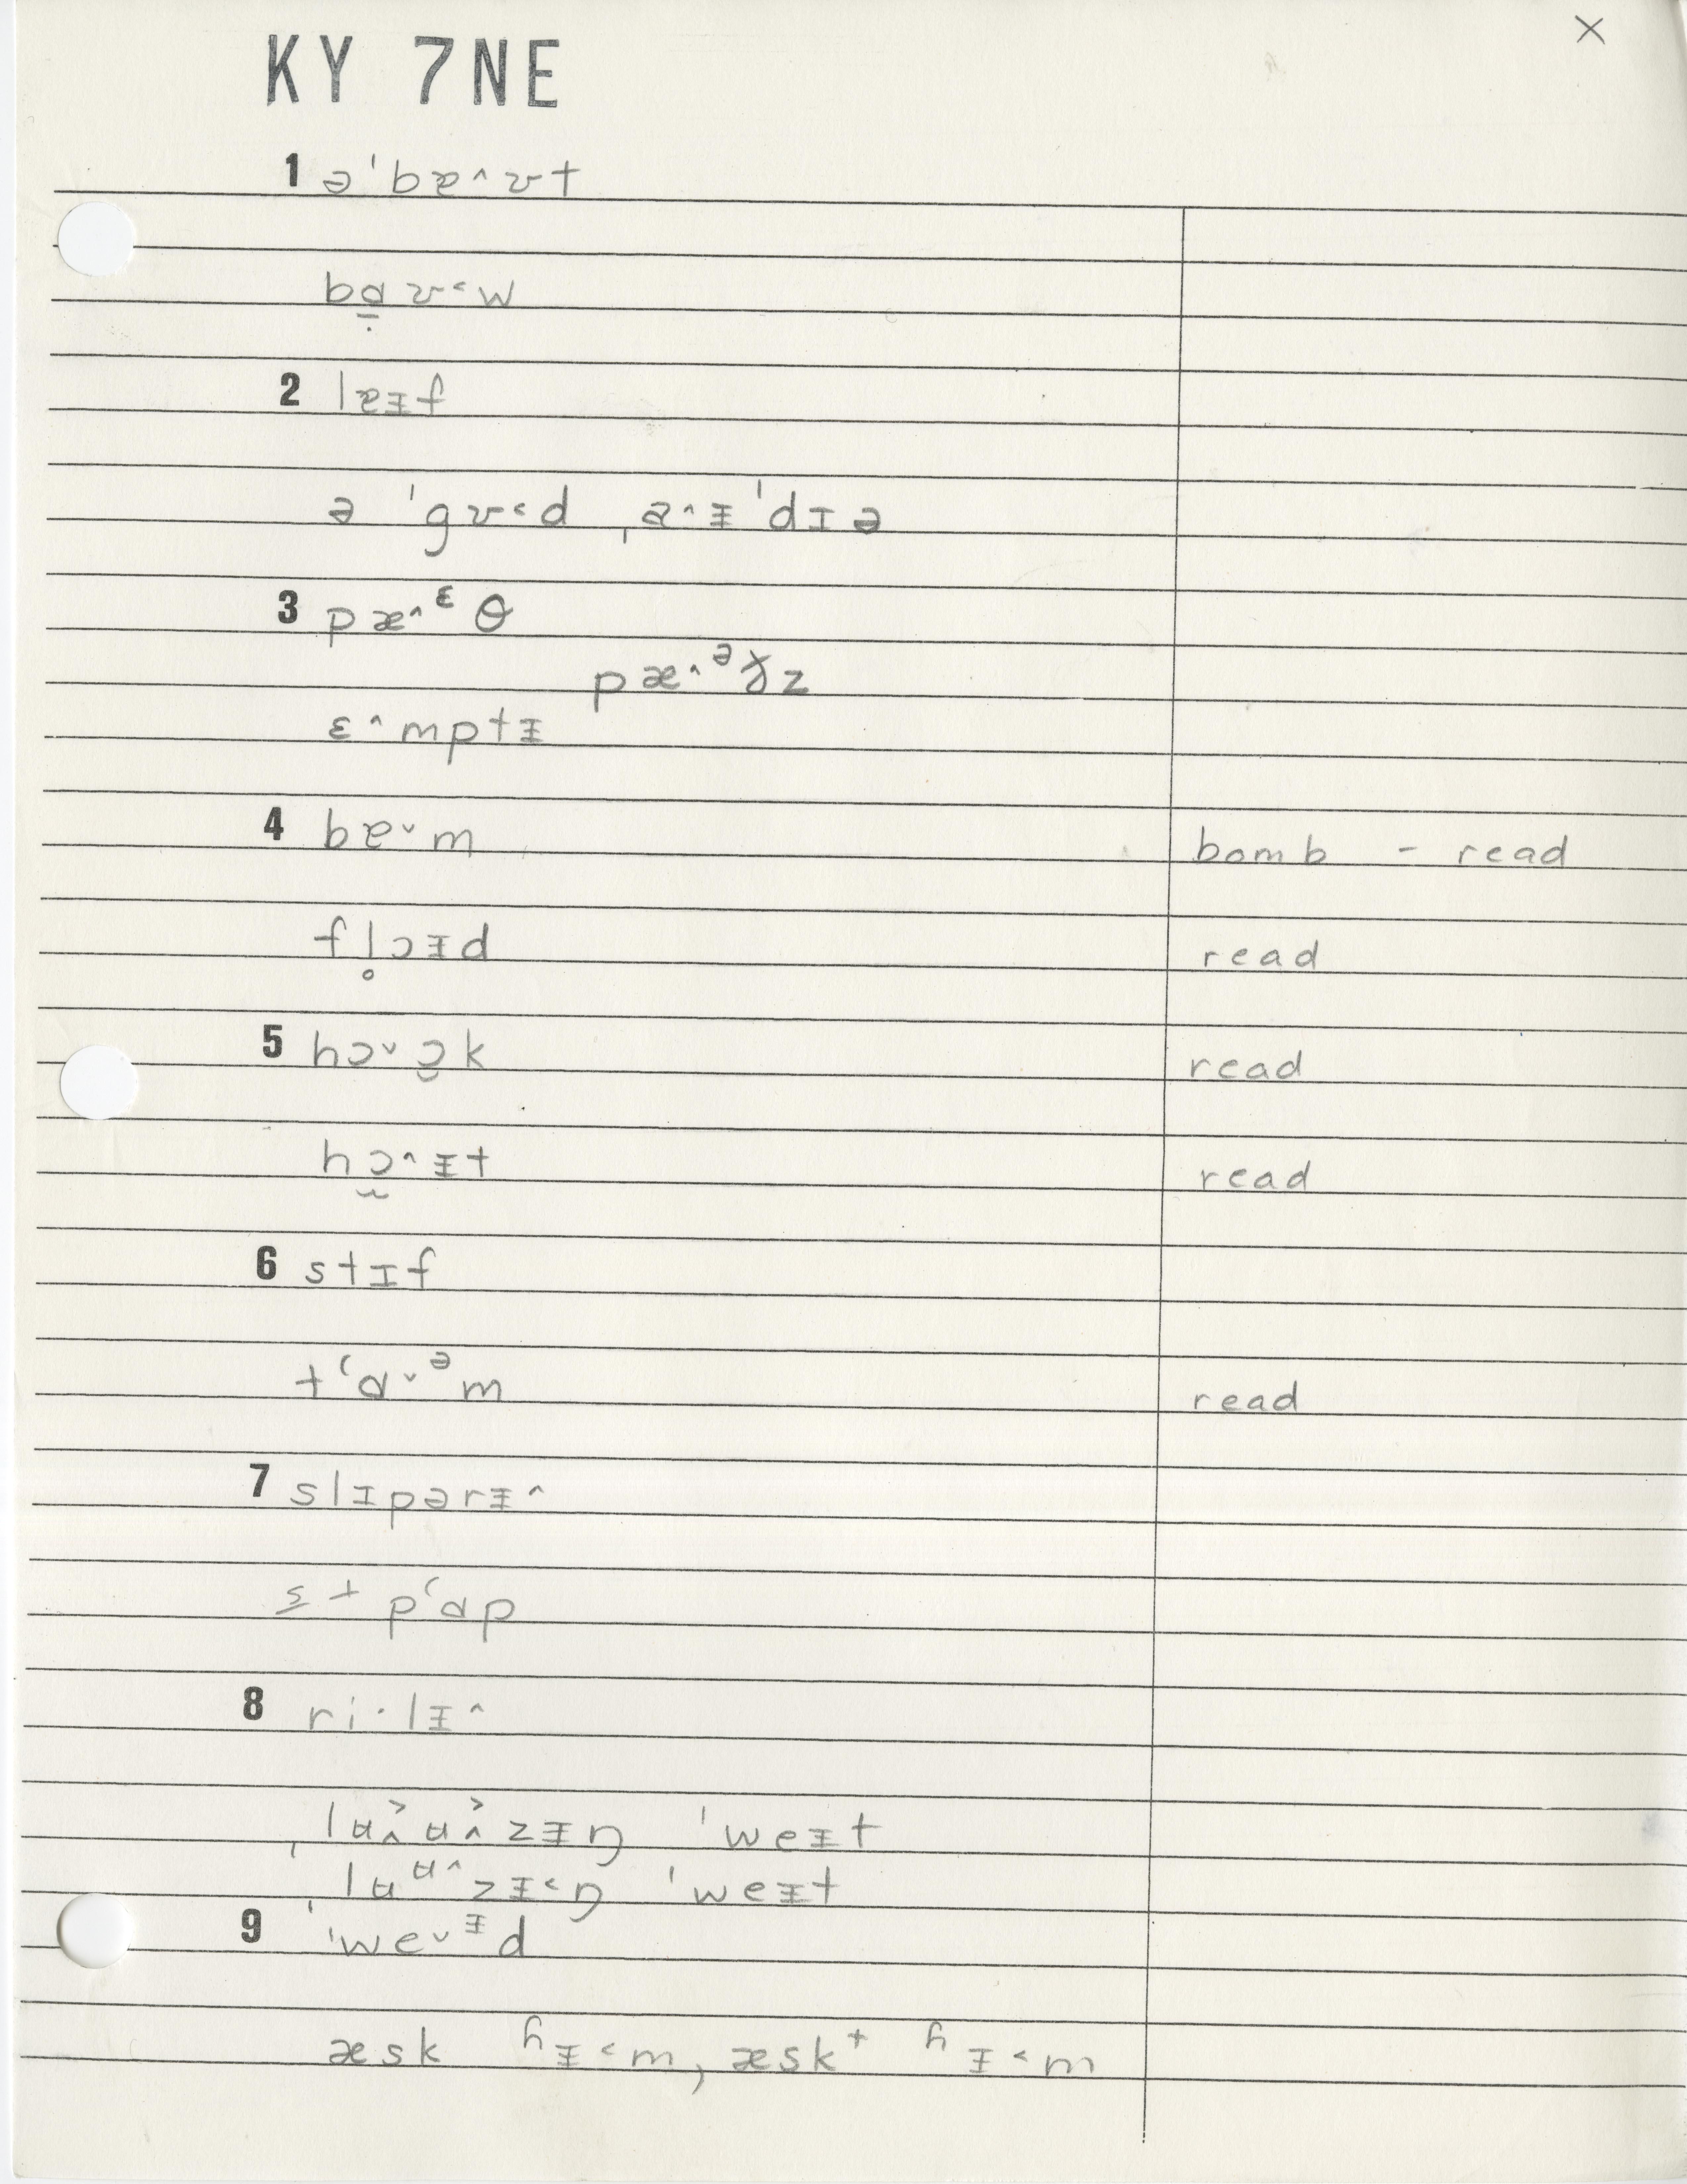 ×
KY 7NE
1 ə ˈbɐ˄ʊt
bɑ̱̇ʊ˂w
2 lɐᵻf
ə ˈgʊ˂d ˌɐ˄ᵻˈdɪə
3 pæ˄ᵋθ
pæ˄ᵊɣz
ɛ˄mptᵻ
4 bɐ˅m bomb - read
fl̥ɔᵻd read
5 hɔ˅ɔ̯k read
hɔ̰˄ᵻt read
6 stɪf
tʻɑ˅ᵊm read
7 slɪpərᵻ˄
s̲t pʻɑp
8 ri·lᵻ˄
ˌlʉ˄ʉ˄zᵻŋ ˈweᵻt
ˌlʉᶶ˄zᵻ˂ŋ ˈweᵻt
9 ˈwe˅ᵻd
æsk ʰᵻ˂m, æskᵗ ʰᵻ˂m